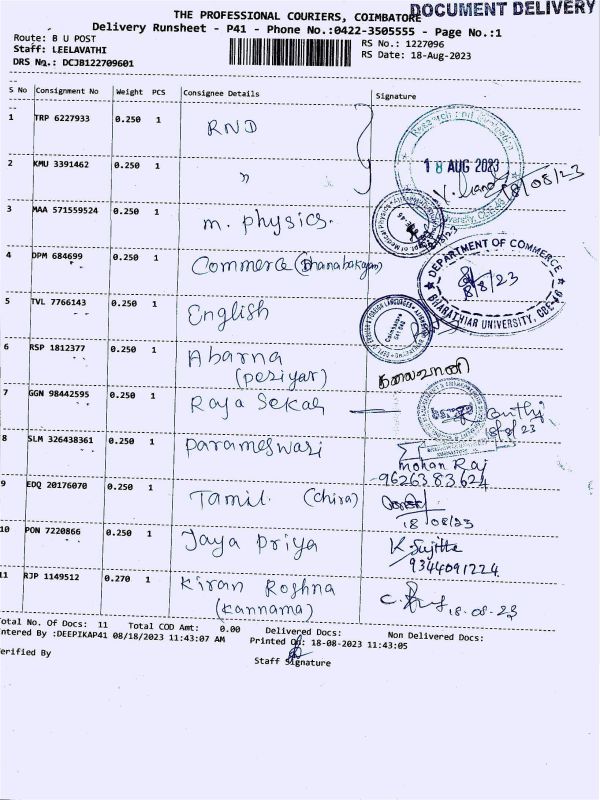 DOCUMENT DELIVERY
THE PROFESSIONAL COURIERS, COIMBATORE
Delivery Runsheet - P41 - Phone No.:0422-3505555 - Page No.:1
Route: B U POST
Staff: LEELAVATHI
DRS No.: DCJB122709601
RS No.: 1227096
RS Date: 18-Aug-2023
S No Consignment No Weight PCS Consignee Details Signature
1 TRP 6227933 0.250 1 RND
18 AUG 2023
18/08/23
2 KMU 3391462 0.250 1 "
3 MAA 571559524 0.250 1 m. physics.
4 DPM 684699 0.250 1 Commerce (Dhanabakyam)
DEPARTMENT OF COMMERCE
8/8/23
BHARATHIAR UNIVERSITY, CBE-46
5 TVL 7766143 0.250 1 English
6 RSP 1812377 0.250 1 Abarna
(periyar)
கலைவாணி
7 GGN 98442595 0.250 1 Raja Sekar
18/8/23
8 SLM 326438361 0.250 1 parameswari
Mohan Raj
9626383624
9 EDQ 20176070 0.250 1 Tamil. (chira)
18/08/23
10 PON 7220866 0.250 1 Jaya priya
K. Sujitha
9344091224
11 RJP 1149512 0.270 1 Kiran Roshna
(Kannama)
18-08-23
Total No. Of Docs: 11 Total COD Amt: 0.00 Delivered Docs: Non Delivered Docs:
ntered By :DEEPIKAP41 08/18/2023 11:43:07 AM Printed On: 18-08-2023 11:43:05
erified By
Staff Signature